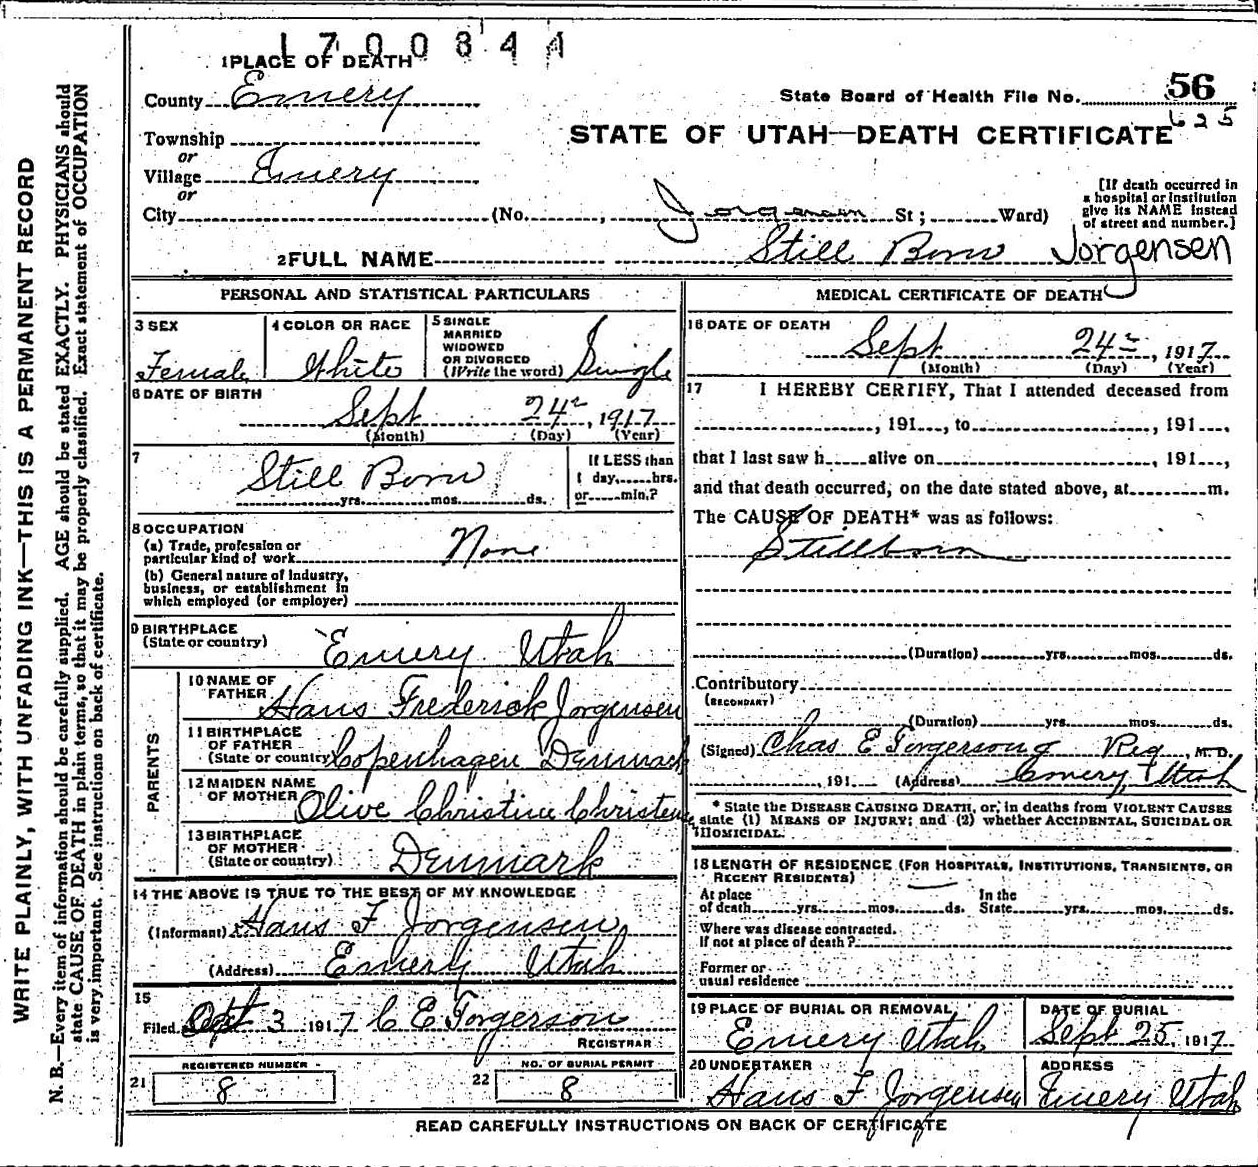 1700844
1 PLACE OF DEATH
County Emery
State Board of Health File No. 56
625
STATE OF UTAH—DEATH CERTIFICATE
Township
or
Village Emery
or
City (No. ; Jorgensen St ; Ward)
[If death occurred in
a hospital or institution
give its NAME instead
of street and number.]
2 FULL NAME Still Born Jorgensen
PERSONAL AND STATISTICAL PARTICULARS
3 SEX
Female
4 COLOR OR RACE
White
5 SINGLE
MARRIED
WIDOWED
OR DIVORCED
(Write the word) Single
6 DATE OF BIRTH
Sept 24, 1917
(Month) (Day) (Year)
7
Still Born
yrs. mos. ds.
If LESS than
1 day, hrs.
or min.?
8 OCCUPATION
(a) Trade, profession or
particular kind of work None
(b) General nature of industry,
business, or establishment in
which employed (or employer)
9 BIRTHPLACE
(State or country) Emery Utah
PARENTS
10 NAME OF
FATHER Hans Frederick Jorgensen
11 BIRTHPLACE
OF FATHER
(State or country) Copenhagen Denmark
12 MAIDEN NAME
OF MOTHER Olive Christine
13 BIRTHPLACE
OF MOTHER
(State or country) Denmark
14 THE ABOVE IS TRUE TO THE BEST OF MY KNOWLEDGE
(Informant) Hans F Jorgensen
(Address) Emery Utah
15
Filed 3 1917 C E Torgerson
REGISTRAR
21 REGISTERED NUMBER
8
22 NO. OF BURIAL PERMIT
8
MEDICAL CERTIFICATE OF DEATH
16 DATE OF DEATH
Sept 24, 1917
(Month) (Day) (Year)
17 I HEREBY CERTIFY, That I attended deceased from
, 191 , to , 191 ,
that I last saw h alive on , 191 ,
and that death occurred, on the date stated above, at m.
The CAUSE OF DEATH* was as follows:
Stillborn
(Duration) yrs. mos. ds.
Contributory
(SECONDARY)
(Duration) yrs. mos. ds.
(Signed) Chas E Torgerson Reg, M. D.
, 191 (Address) Emery, Utah
* State the DISEASE CAUSING DEATH, or, in deaths from VIOLENT CAUSES
state (1) MEANS OF INJURY; and (2) whether ACCIDENTAL, SUICIDAL OR
HOMICIDAL.
18 LENGTH OF RESIDENCE (FOR HOSPITALS, INSTITUTIONS, TRANSIENTS, OR
RECENT RESIDENTS)
At place
of death yrs. mos. ds.
In the
State yrs. mos. ds.
Where was disease contracted.
If not at place of death?
Former or
usual residence
19 PLACE OF BURIAL OR REMOVAL
Emery Utah
DATE OF BURIAL
Sept 25, 1917
20 UNDERTAKER
Hans F Jorgensen
ADDRESS
Emery Utah
READ CAREFULLY INSTRUCTIONS ON BACK OF CERTIFICATE
WRITE PLAINLY, WITH UNFADING INK—THIS IS A PERMANENT RECORD
N. B.—Every item of information should be carefully supplied. AGE should be stated EXACTLY. PHYSICIANS should
state CAUSE OF DEATH in plain terms, so that it may be properly classified. Exact statement of OCCUPATION
is very important. See instructions on back of certificate.